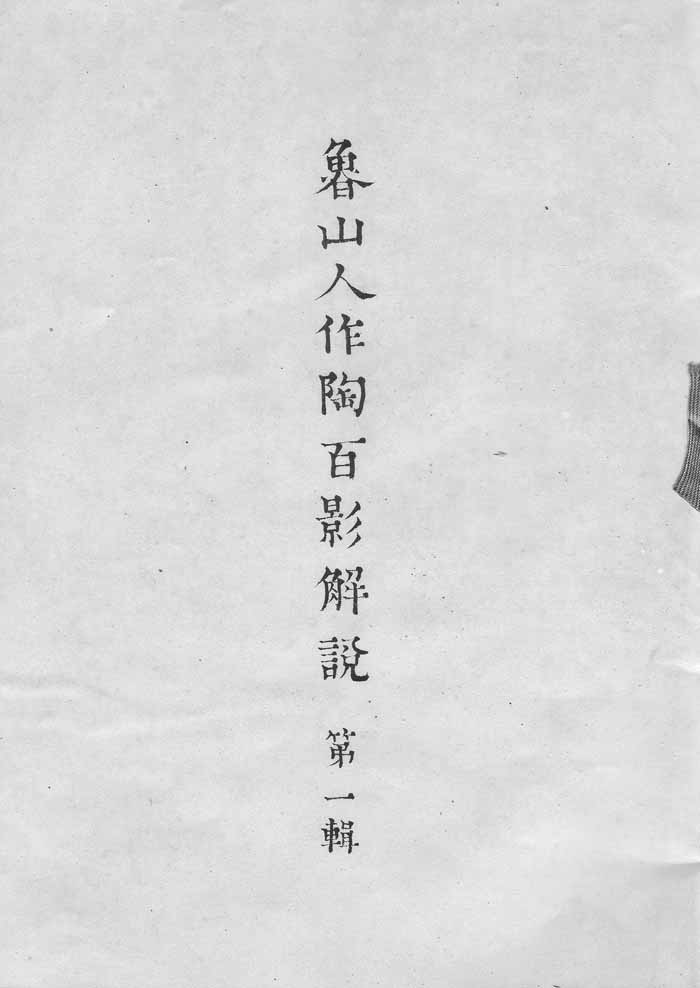 魯山人作陶百影解說 第一輯